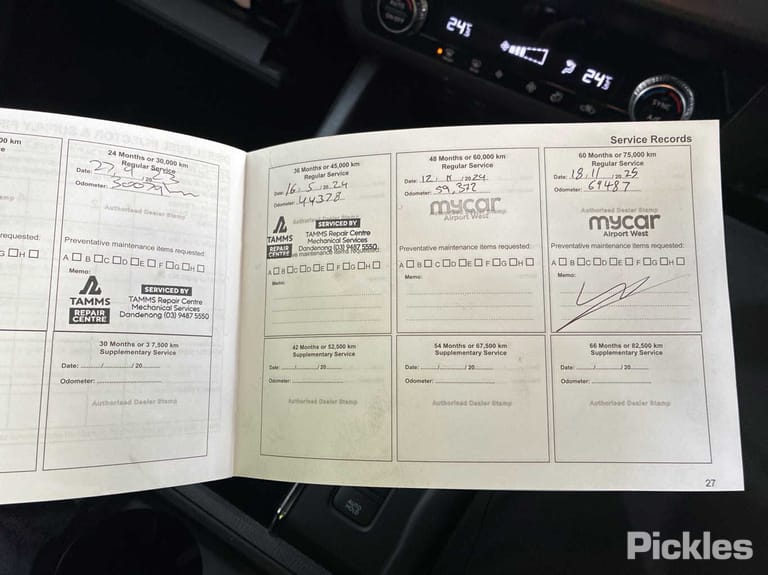 24½
24½
SYNC
ON/OFF
Service Records
00 km
24 Months or 30,000 km
Regular Service
Date: 27/9/2023
Odometer:
Authorised Dealer Stamp
requested:
G□H□
Preventative maintenance items requested:
A□B□C□D□E□F□G□H□
Memo:
TAMMS
REPAIR
CENTRE
SERVICED BY
TAMMS Repair Centre
Mechanical Services
Dandenong (03) 9487 5550
30 Months or 37,500 km
Supplementary Service
Date: ......./......./20.......
Odometer: .......................
Authorised Dealer Stamp
36 Months or 45,000 km
Regular Service
Date: 16/5/2024
Odometer: 44328
Authorised Dealer Stamp
TAMMS
REPAIR
CENTRE
SERVICED BY
TAMMS Repair Centre
Mechanical Services
Dandenong (03) 9487 5550
maintenance items requested:
A□B□C□D□E□F□G□H□
Memo:
42 Months or 52,500 km
Supplementary Service
Date: ......./......./20.......
Odometer: .......................
Authorised Dealer Stamp
48 Months or 60,000 km
Regular Service
Date: 12/11/2024
Odometer: 59,322
Authorised Dealer Stamp
mycar
Airport West
Preventative maintenance items requested:
A□B□C□D□E□F□G□H□
Memo:
54 Months or 67,500 km
Supplementary Service
Date: ......./......./20.......
Odometer: .......................
Authorised Dealer Stamp
60 Months or 75,000 km
Regular Service
Date: 18/11/2025
Odometer: 69487
Authorised Dealer Stamp
mycar
Airport West
Preventative maintenance items requested:
A□B□C□D□E□F□G□H□
Memo:
66 Months or 82,500 km
Supplementary Service
Date: ......./......./20.......
Odometer: .......................
Authorised Dealer Stamp
27
AUTO
HOLD
Pickles